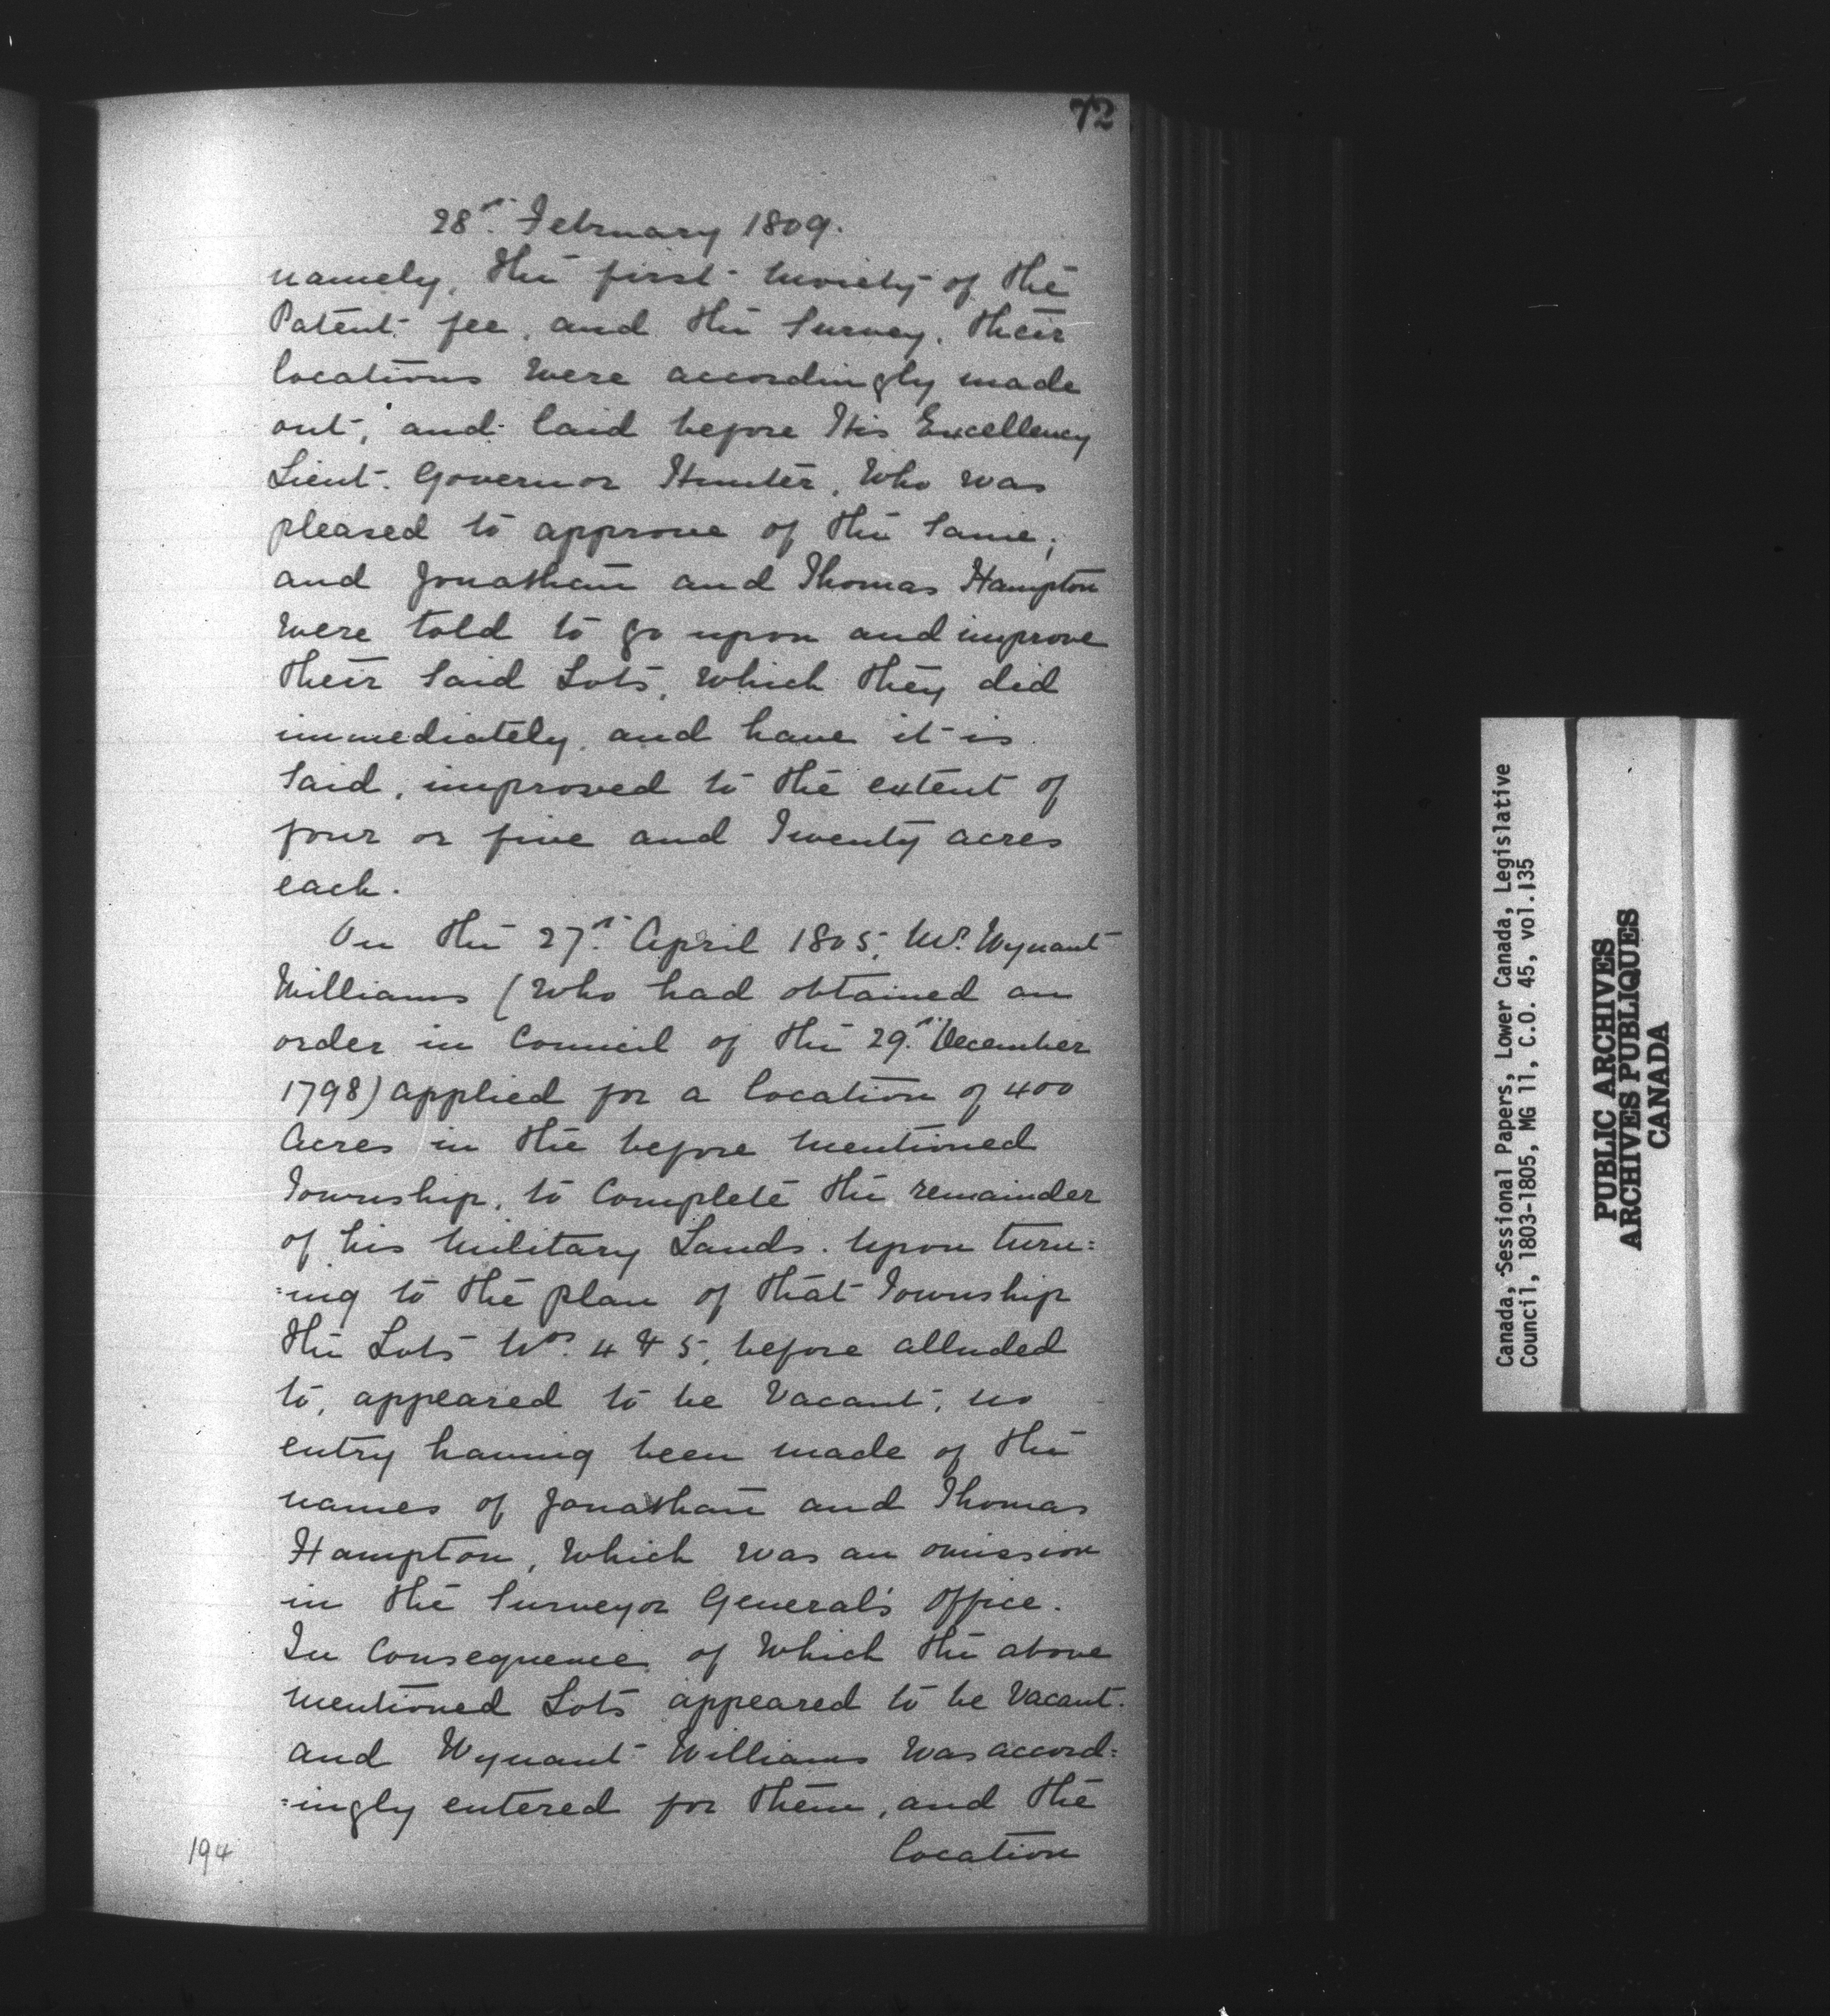 72
28th February 1809.
namely, the first Moiety of the
Patent fee, and the Survey. Their
locations were accordingly made
out, and laid before His Excellency
Lieut. Governor Hunter, Who was
pleased to approve of the Same;
and Jonathan and Thomas Hampton
were told to go upon and improve
their Said Lots, Which they did
immediately, and have it is
Said, improved to the extent of
four or five and Twenty acres
each.
On the 27th April 1805, Mr. Wynant
Williams (Who had obtained an
order in Council of the 29th December
1798) applied for a location of 400
Acres in the before mentioned
Township, to Complete the remainder
of his Military Lands. Upon turn=
=ing to the plan of that Township
the Lots Nos. 4 & 5, before alluded
to, appeared to be Vacant, no
entry having been made of the
names of Jonathan and Thomas
Hampton, Which was an omission
in the Surveyor General's Office.
In Consequence of Which the above
mentioned Lots appeared to be Vacant.
and Wynant Williams Was accord=
=ingly entered for them, and the
Location
194
Canada, Sessional Papers, Lower Canada, Legislative
Council, 1803-1805, MG 11, C.O. 45, vol.135
PUBLIC ARCHIVES
ARCHIVES PUBLIQUES
CANADA